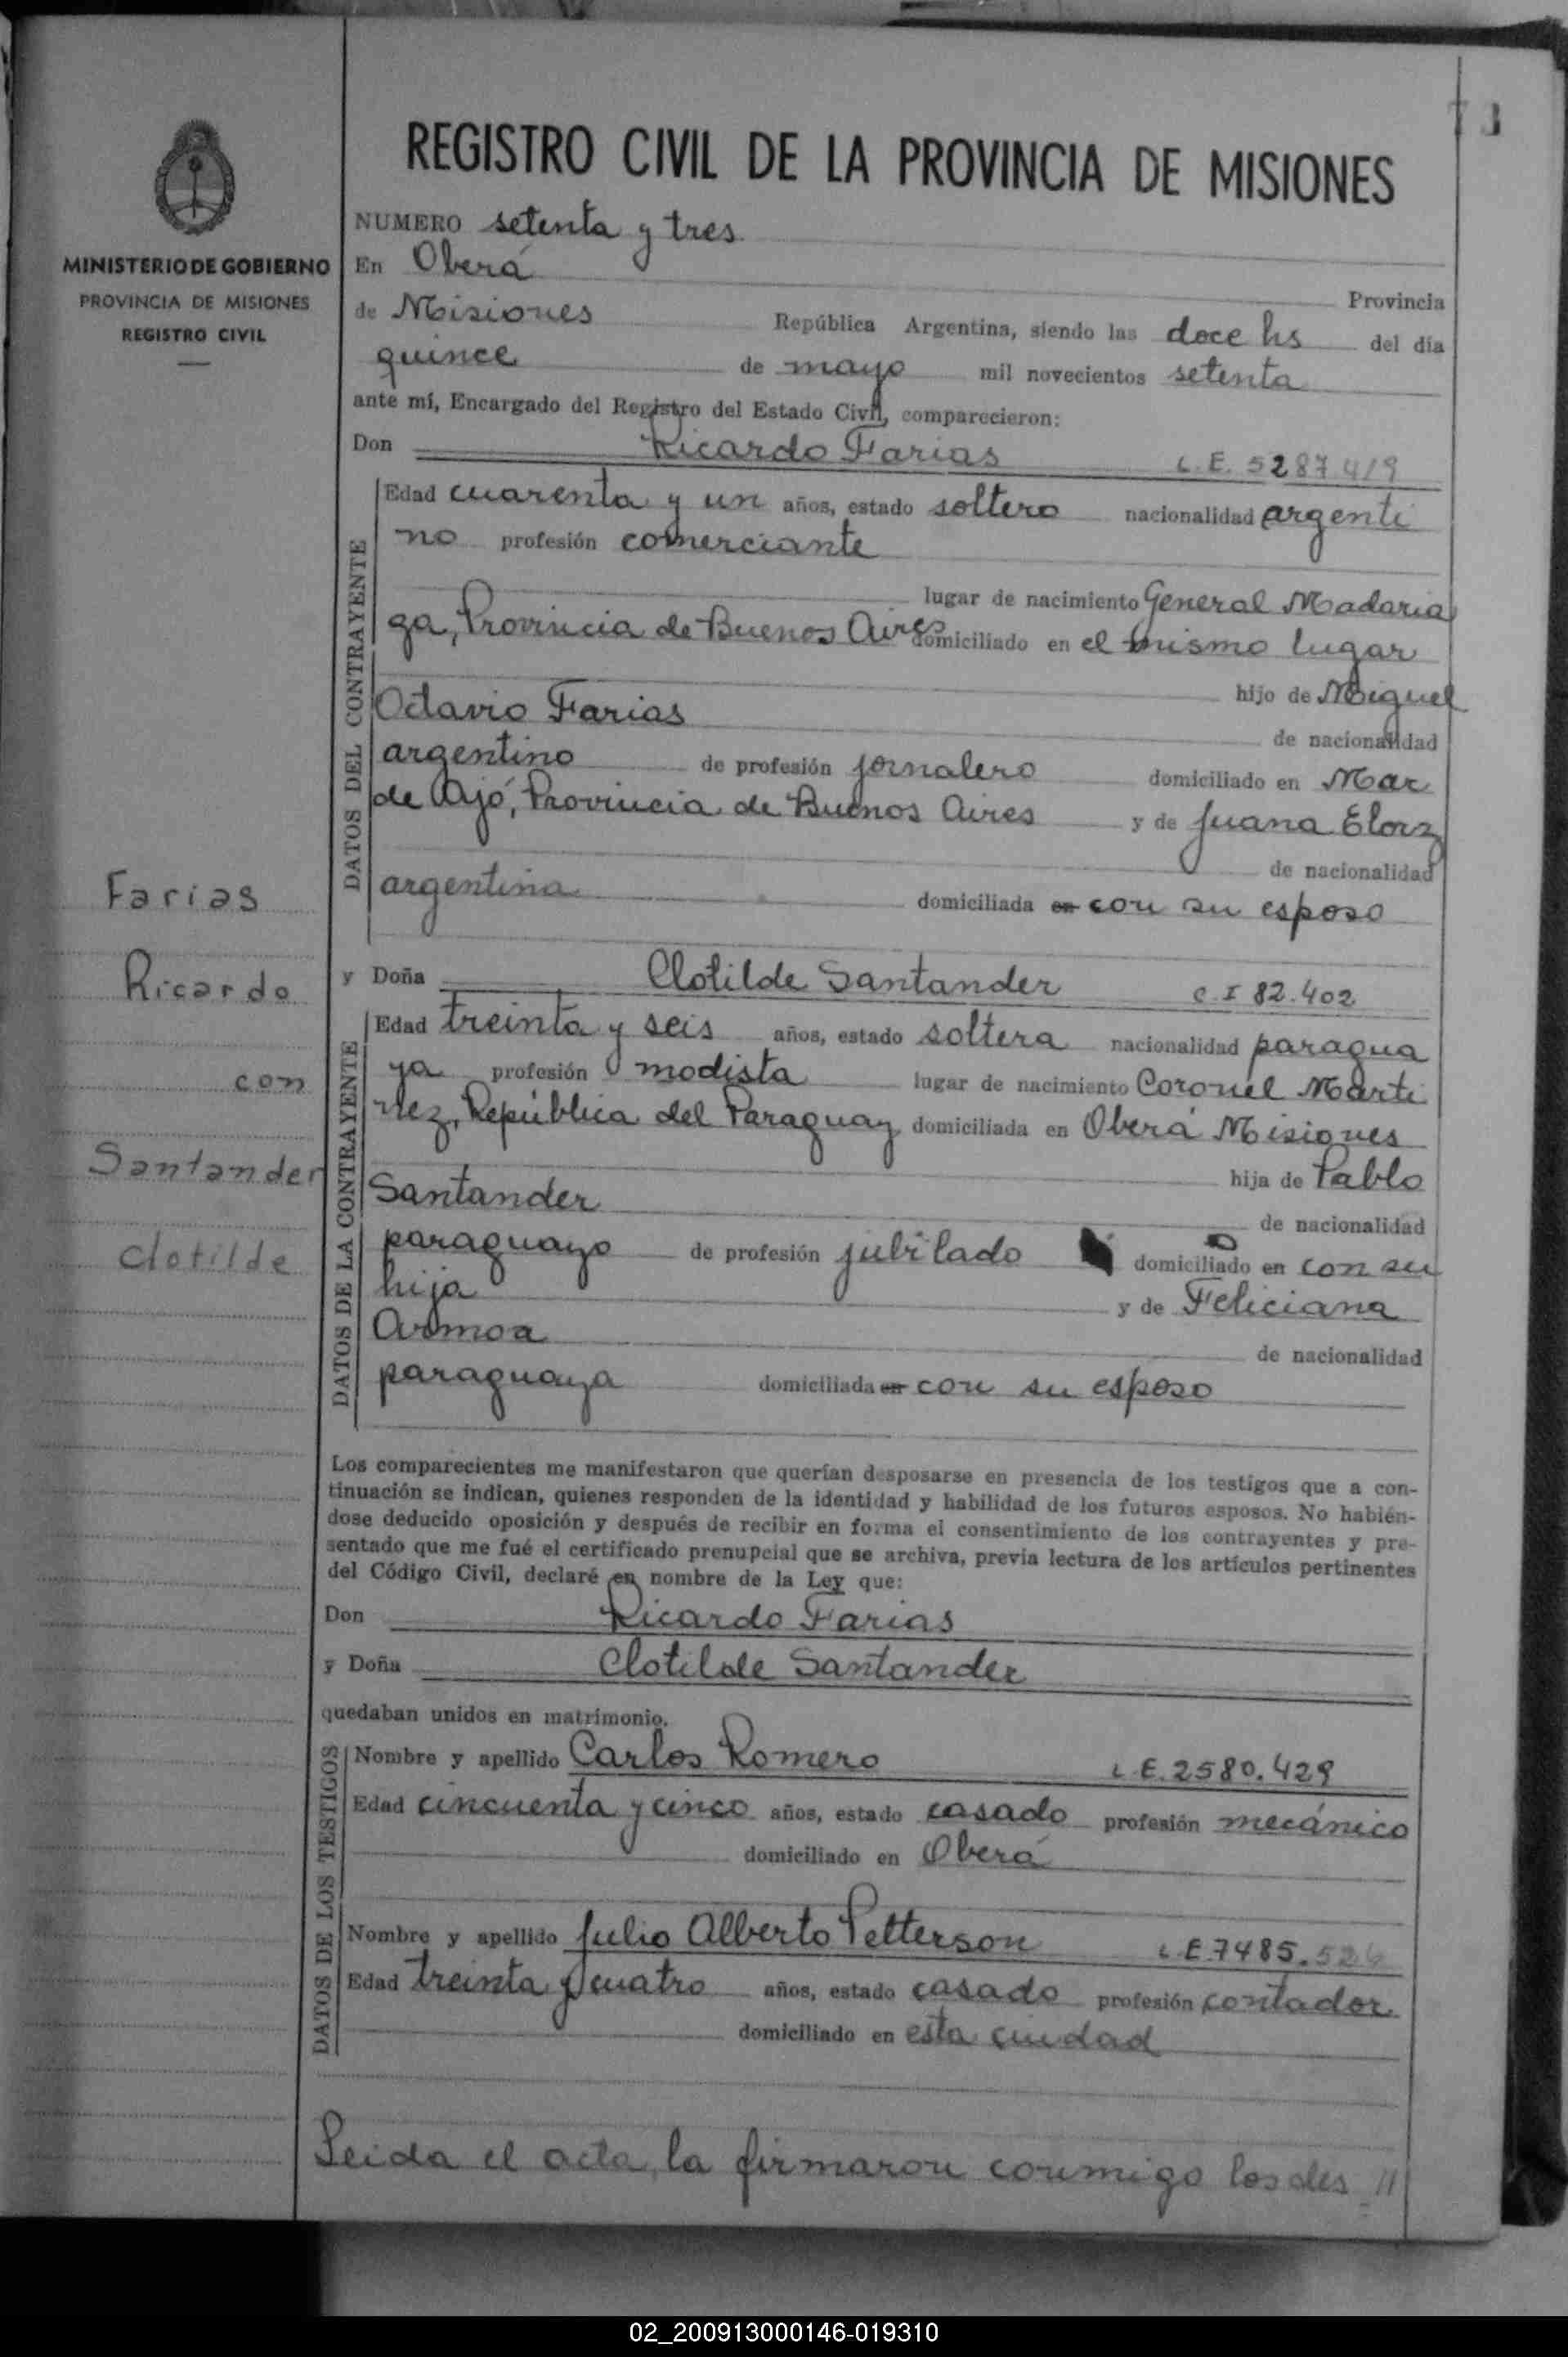 73
REGISTRO CIVIL DE LA PROVINCIA DE MISIONES
MINISTERIO DE GOBIERNO
PROVINCIA DE MISIONES
REGISTRO CIVIL
NUMERO setenta y tres
En Oberá Provincia
de Misiones República Argentina, siendo las doce hs del día
quince de mayo mil novecientos setenta
ante mí, Encargado del Registro del Estado Civil, comparecieron:
Don Ricardo Farias L.E. 5287419
DATOS DEL CONTRAYENTE
Edad cuarenta y un años, estado soltero nacionalidad argenti
no profesión comerciante
lugar de nacimiento General Madaria
ga, Provincia de Buenos Aires domiciliado en el mismo lugar
hijo de Miguel
Octavio Farias de nacionalidad
argentino de profesión jornalero domiciliado en Mar
de Ajó, Provincia de Buenos Aires y de Juana Elorz
de nacionalidad
argentina domiciliada en con su esposo
Farias
Ricardo
con
Santander
Clotilde
y Doña Clotilde Santander C.I 82.402
DATOS DE LA CONTRAYENTE
Edad treinta y seis años, estado soltera nacionalidad paragua
ya profesión modista lugar de nacimiento Coronel Marti
nez, República del Paraguay domiciliada en Oberá Misiones
hija de Pablo
Santander de nacionalidad
paraguayo de profesión jubilado domiciliado en con su
hija y de Feliciana
Armoa de nacionalidad
paraguaya domiciliada en con su esposo
Los comparecientes me manifestaron que querían desposarse en presencia de los testigos que a con-
tinuación se indican, quienes responden de la identidad y habilidad de los futuros esposos. No habién-
dose deducido oposición y después de recibir en forma el consentimiento de los contrayentes y pre-
sentado que me fué el certificado prenupcial que se archiva, previa lectura de los artículos pertinentes
del Código Civil, declaré en nombre de la Ley que:
Don Ricardo Farias
y Doña Clotilde Santander
quedaban unidos en matrimonio.
DATOS DE LOS TESTIGOS
Nombre y apellido Carlos Romero L.E. 2580.429
Edad cincuenta y cinco años, estado casado profesión mecánico
domiciliado en Oberá
Nombre y apellido Julio Alberto Petterson L.E 7485.526
Edad treinta y cuatro años, estado casado profesión contador
domiciliado en esta ciudad
Leida el acta, la firmaron conmigo los des //
02_200913000146-019310